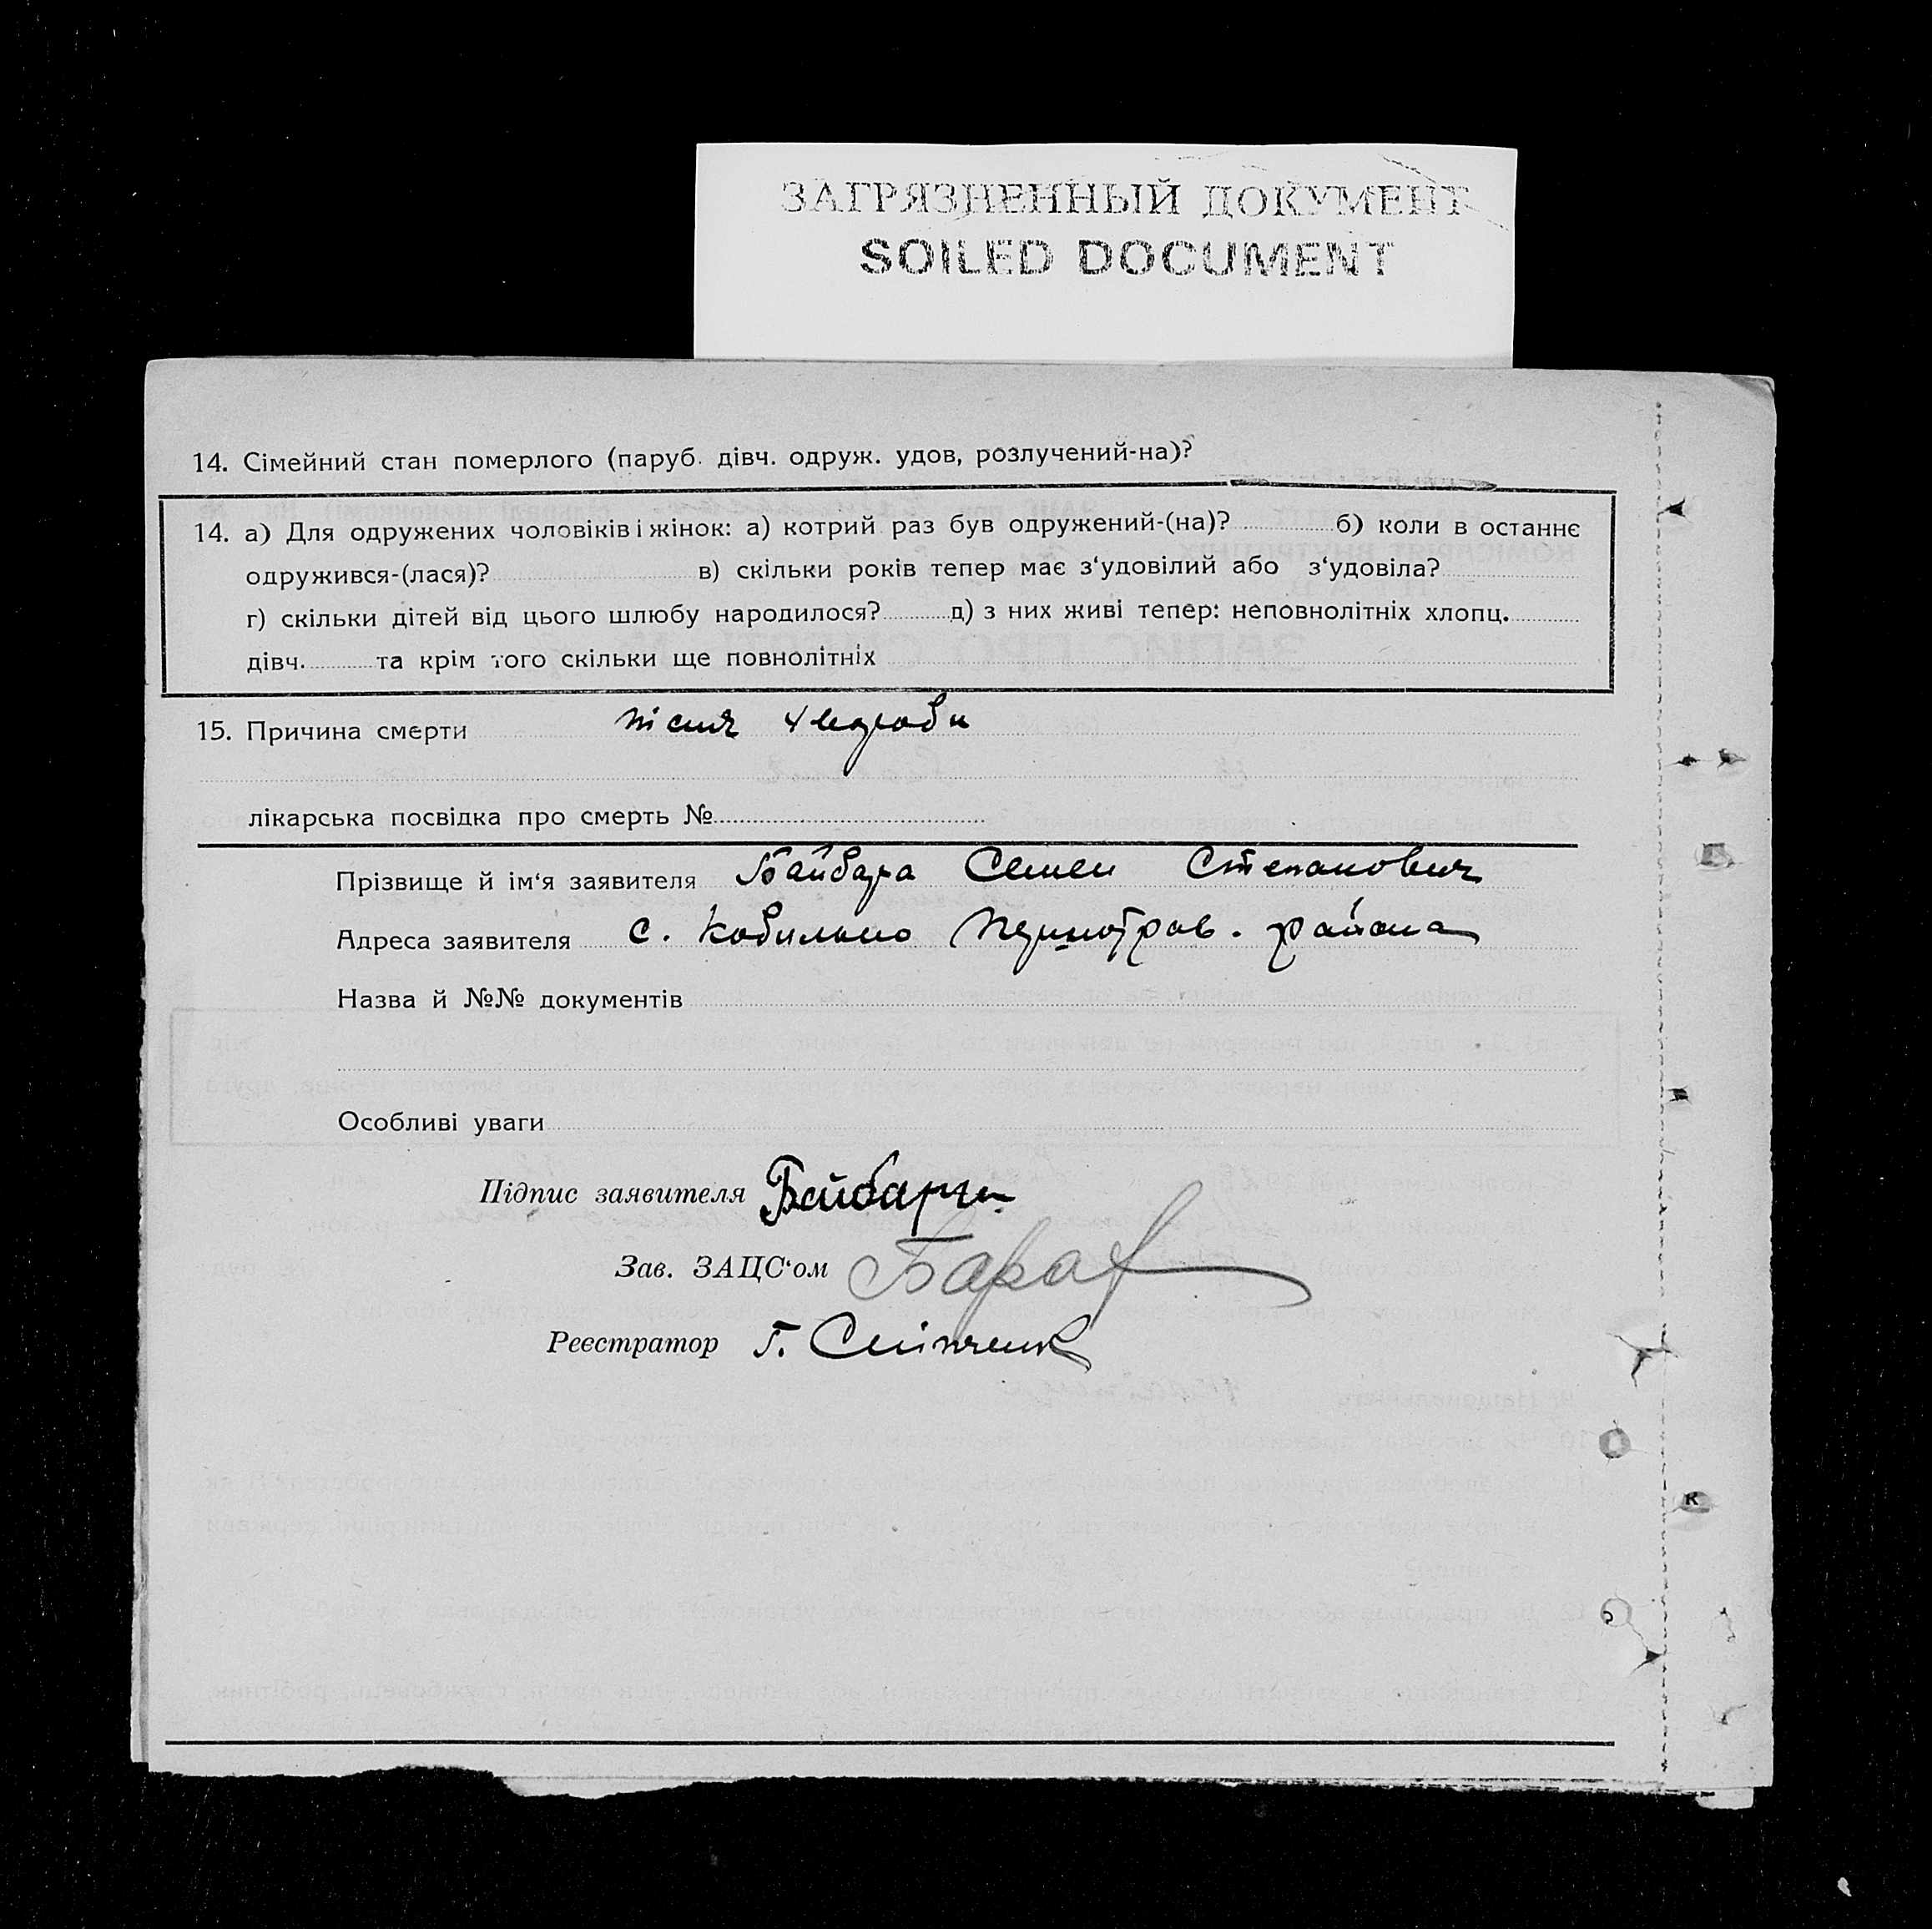 ЗАГРЯЗНЕННЫЙ ДОКУМЕНТ
SOILED DOCUMENT
14. Сімейний стан померлого (паруб. дівч. одруж. удов, розлучений-на)?
14. а) Для одружених чоловіків і жінок: а) котрий раз був одружений-(на)? б) коли в останнє
одружився-(лася)? в) скільки років тепер має з‘удовілий або з‘удовіла?
г) скільки дітей від цього шлюбу народилося? д) з них живі тепер: неповнолітніх хлопц.
дівч. та крім того скільки ще повнолітніх
15. Причина смерти після
лікарська посвідка про смерть №
Прізвище й ім‘я заявителя Байбара Семен Степанович
Адреса заявителя с. района
Назва й №№ документів
Особливі уваги
Підпис заявителя
Зав. ЗАЦС‘ом
Реєстратор Г.